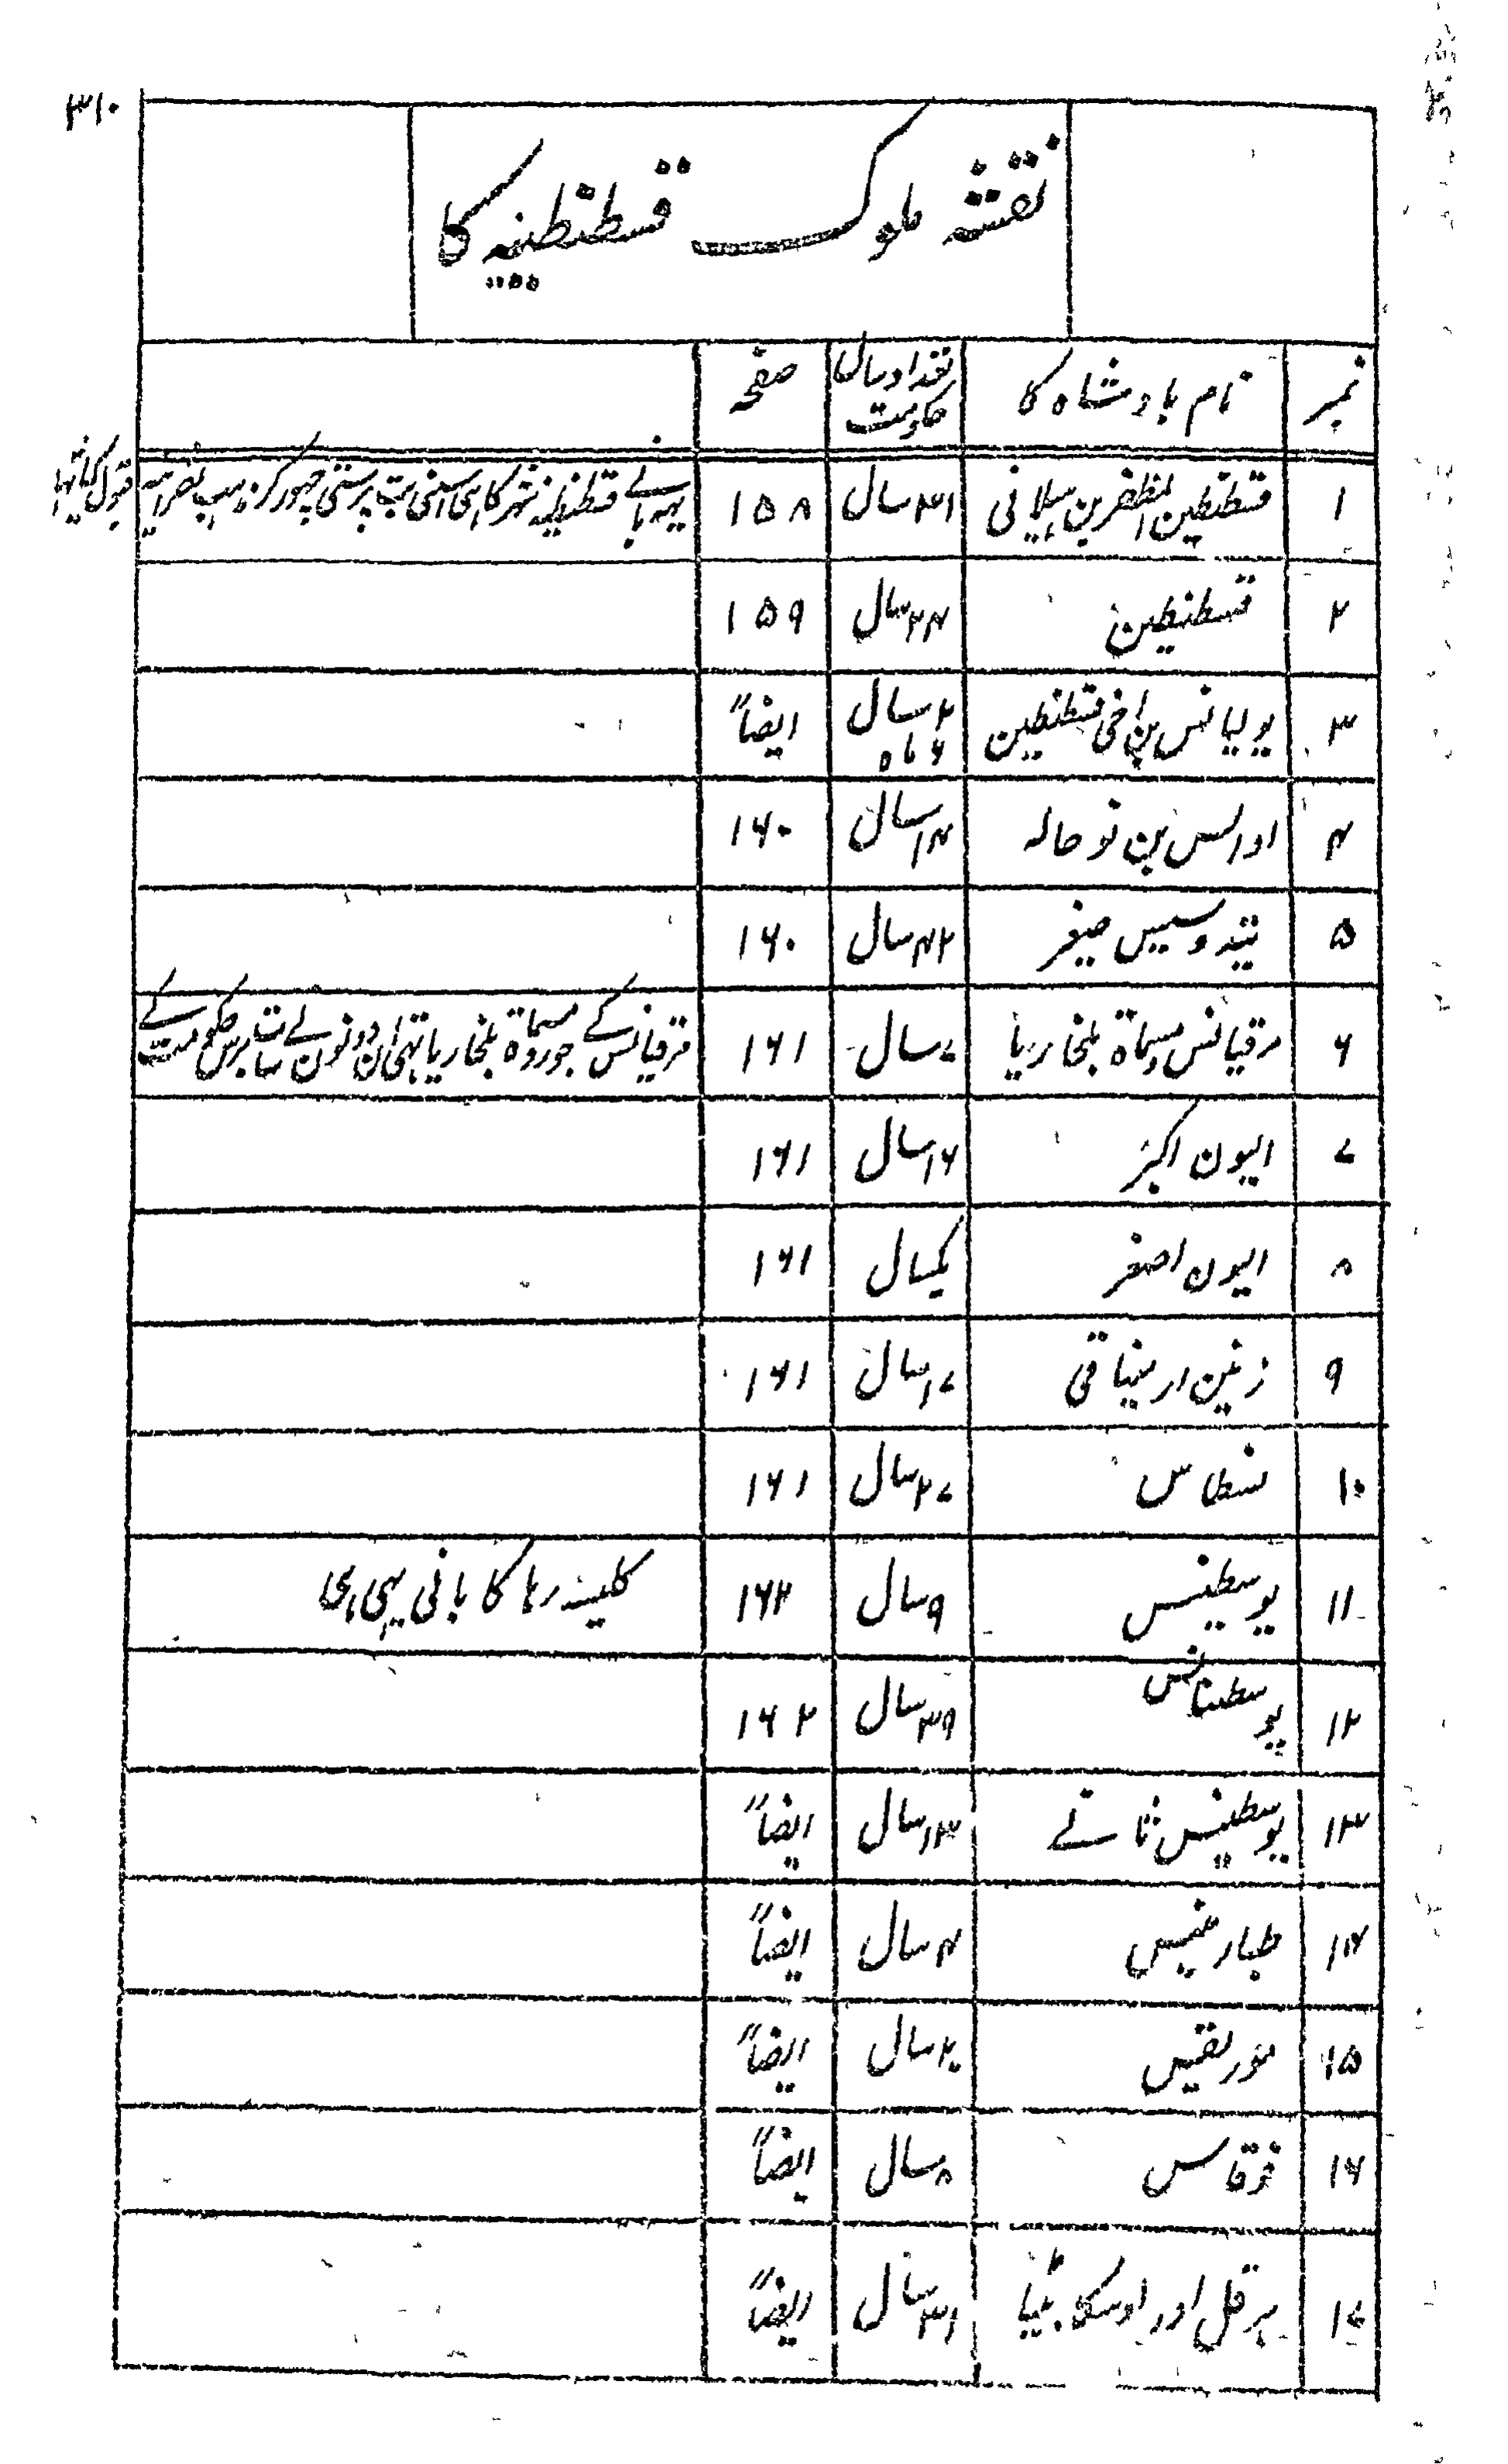 ۳۱۰
نقشہ ملوک قسطنطینیہ کا
نمبر نام بادشاہ کا تعداد سال حکومت صفحہ
۱ قسطنطین المظفر بن ہیلانی ۳۱ سال ۱۵۸ یہہ بانے قسطنطینہ شہر کا ہی اسنی بت پرستی چہور کر مذہب نصرانیہ قبول کیا تہا
۲ قسطنطین ۲۴ سال ۱۵۹
۳ یولیانس بن اخی قسطنطین ۲ سال ۶ ماہ ایضاً
۴ اوالس بن توحالہ ۱۴ سال ۱۶۰
۵ تیدوسیس صیغر ۴۲ سال ۱۶۰
۶ مرقیانس ومسماۃ بلخاریا ۷ سال ۱۶۱ مرقیانس کے جورو مسماۃ بلخاریا تہی ان دونون نے سات برس حکومت کے
۷ الیون اکبر ۱۶ سال ۱۶۱
۸ الیون اصغر یکسال ۱۶۱
۹ زنین ارمیناقی ۱۷ سال ۱۶۱
۱۰ نسطاس ۲۷ سال ۱۶۱
۱۱ یوسطینس ۹ سال ۱۶۲ کلیسہ رہا کا بانی یہی ہی
۱۲ یوسطینانس ۳۹ سال ۱۶۲
۱۳ یوسطینس ثانے ۱۳ سال ایضاً
۱۴ طبارینس ۴ سال ایضاً
۱۵ موریقیس ۲۰ سال ایضاً
۱۶ فوقاس ۸ سال ایضاً
۱۷ ہرقل اور اوسکا بیٹیا ۳۱ سال ایضاً